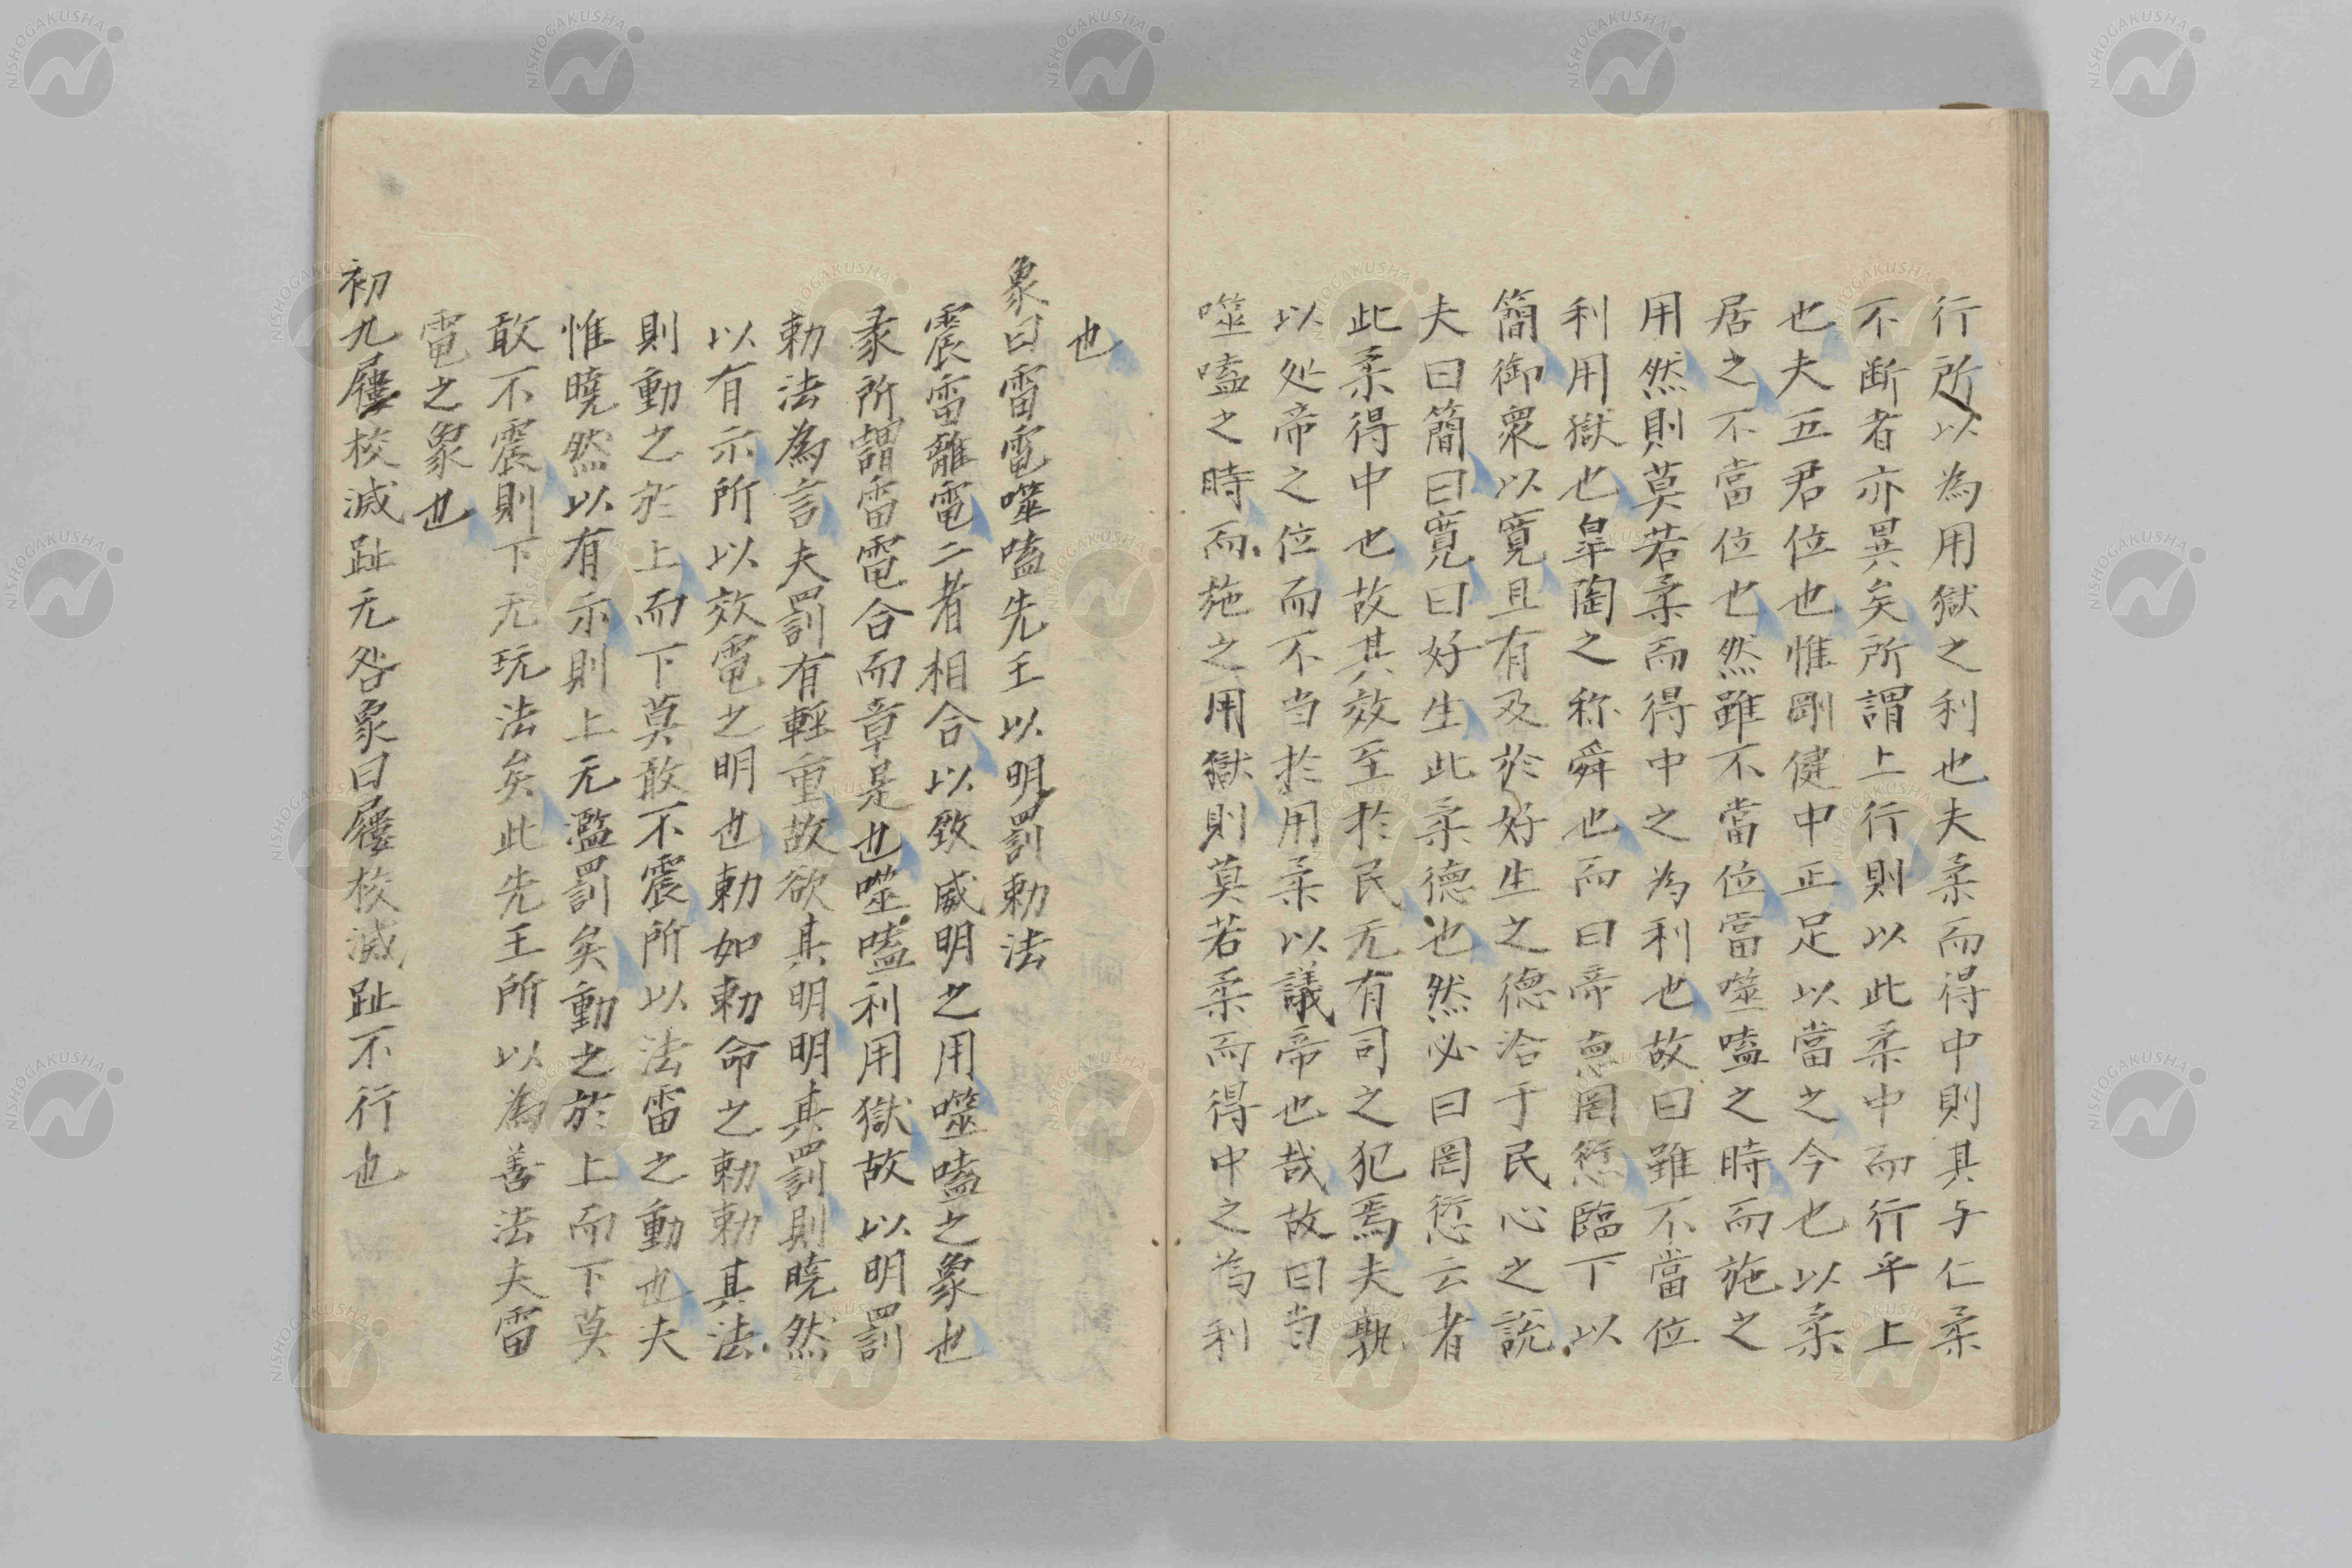 行所以為用獄之利也夫柔而得中則其与仁柔
不断者亦異矣所謂上行則以此柔中而行乎上
也夫五君位也惟剛健中正足以當之今也以柔
居之不當位也然雖不當位當噬嗑之時而施之
用然則莫若柔而得中之為利也故曰雖不當位
利用獄也皐陶之称舜也而曰帝悳罔愆臨下以
簡御衆以寛且有及於好生之德洽于民心之說
夫曰簡曰寛曰好生此柔德也然必曰罔愆云者
此柔得中也故其效至於民无有司之犯焉夫孰
以処帝之位而不当於用柔以議帝也哉故曰当
噬嗑之時而施之用獄則莫若柔而得中之為利
也
象曰雷電噬嗑先王以明罰勅法
震雷離電二者相合以致威明之用噬嗑之象也
彖所謂雷電合而章是也噬嗑利用獄故以明罰
勅法為言夫罰有輕重故欲其明明其罰則曉然
以有示所以效電之明也勅如勅命之勅勅其法
則動之於上而下莫敢不震所以法雷之動也夫
惟曉然以有示則上无濫罰矣動之於上而下莫
敢不震則下无玩法矣此先王所以為善法夫雷
電之象也
初九屨校滅趾无咎象曰屨校滅趾不行也
NISHOGAKUSHA